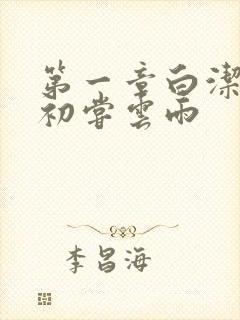 第一章白潔
初嘗雲雨
李昌海